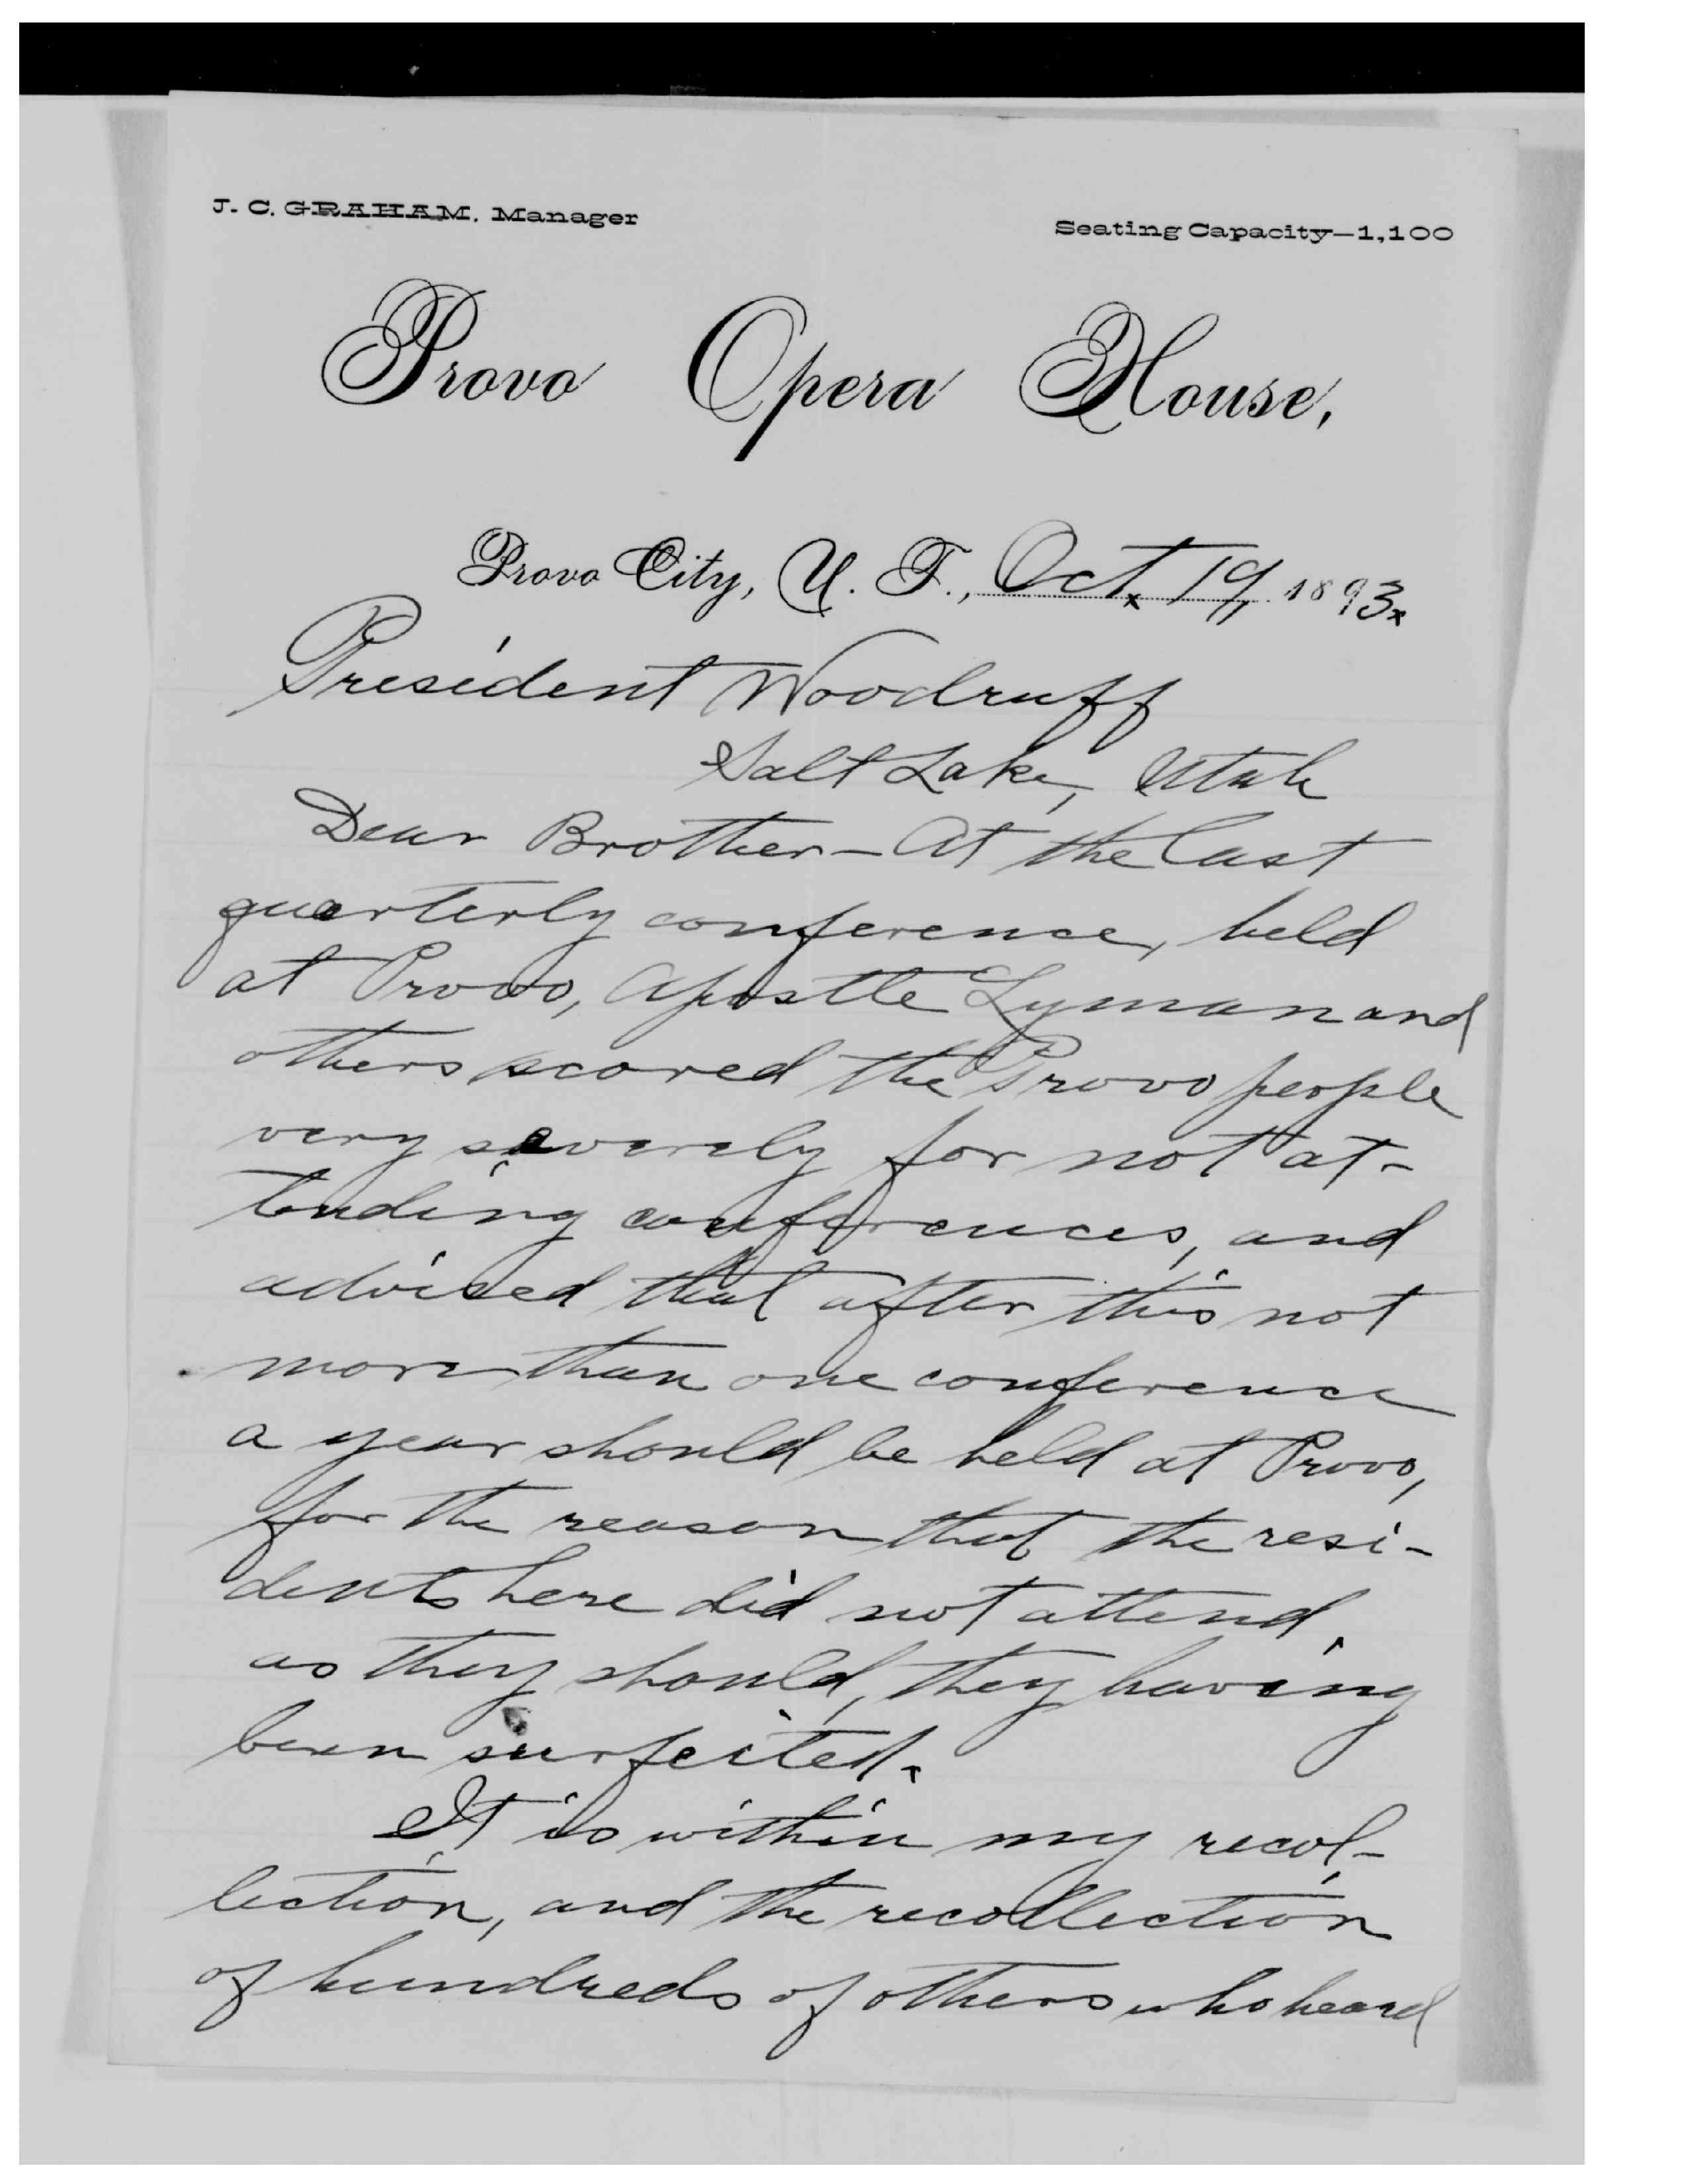 J. C. GRAHAM, Manager
Seating Capacity—1,100
Provo Opera House,
Provo City, U. T., Oct. 19, 1893.
President Woodruff
Salt Lake, Utah
Dear Brother—At the last
quarterly conference, held
at Provo, Apostle Lyman and
others scored the Provo people
very severely for not at-
tending conferences, and
advised that after this not
more than one conference
a year should be held at Provo,
for the reason that the resi-
dents here did not attend,
as they should, they having
been surfeited.
It is within my recol-
lection, and the recollection
of hundreds of others who heard